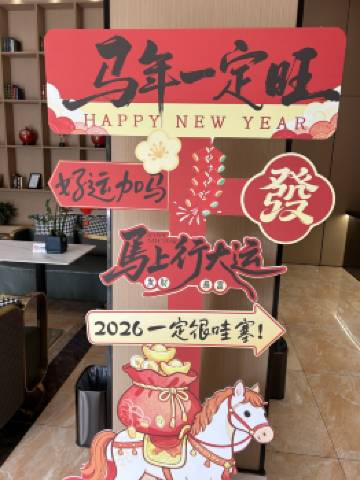 马年一定旺
HAPPY NEW YEAR
好运加马
發
馬上行大运
2026一定很哇塞!